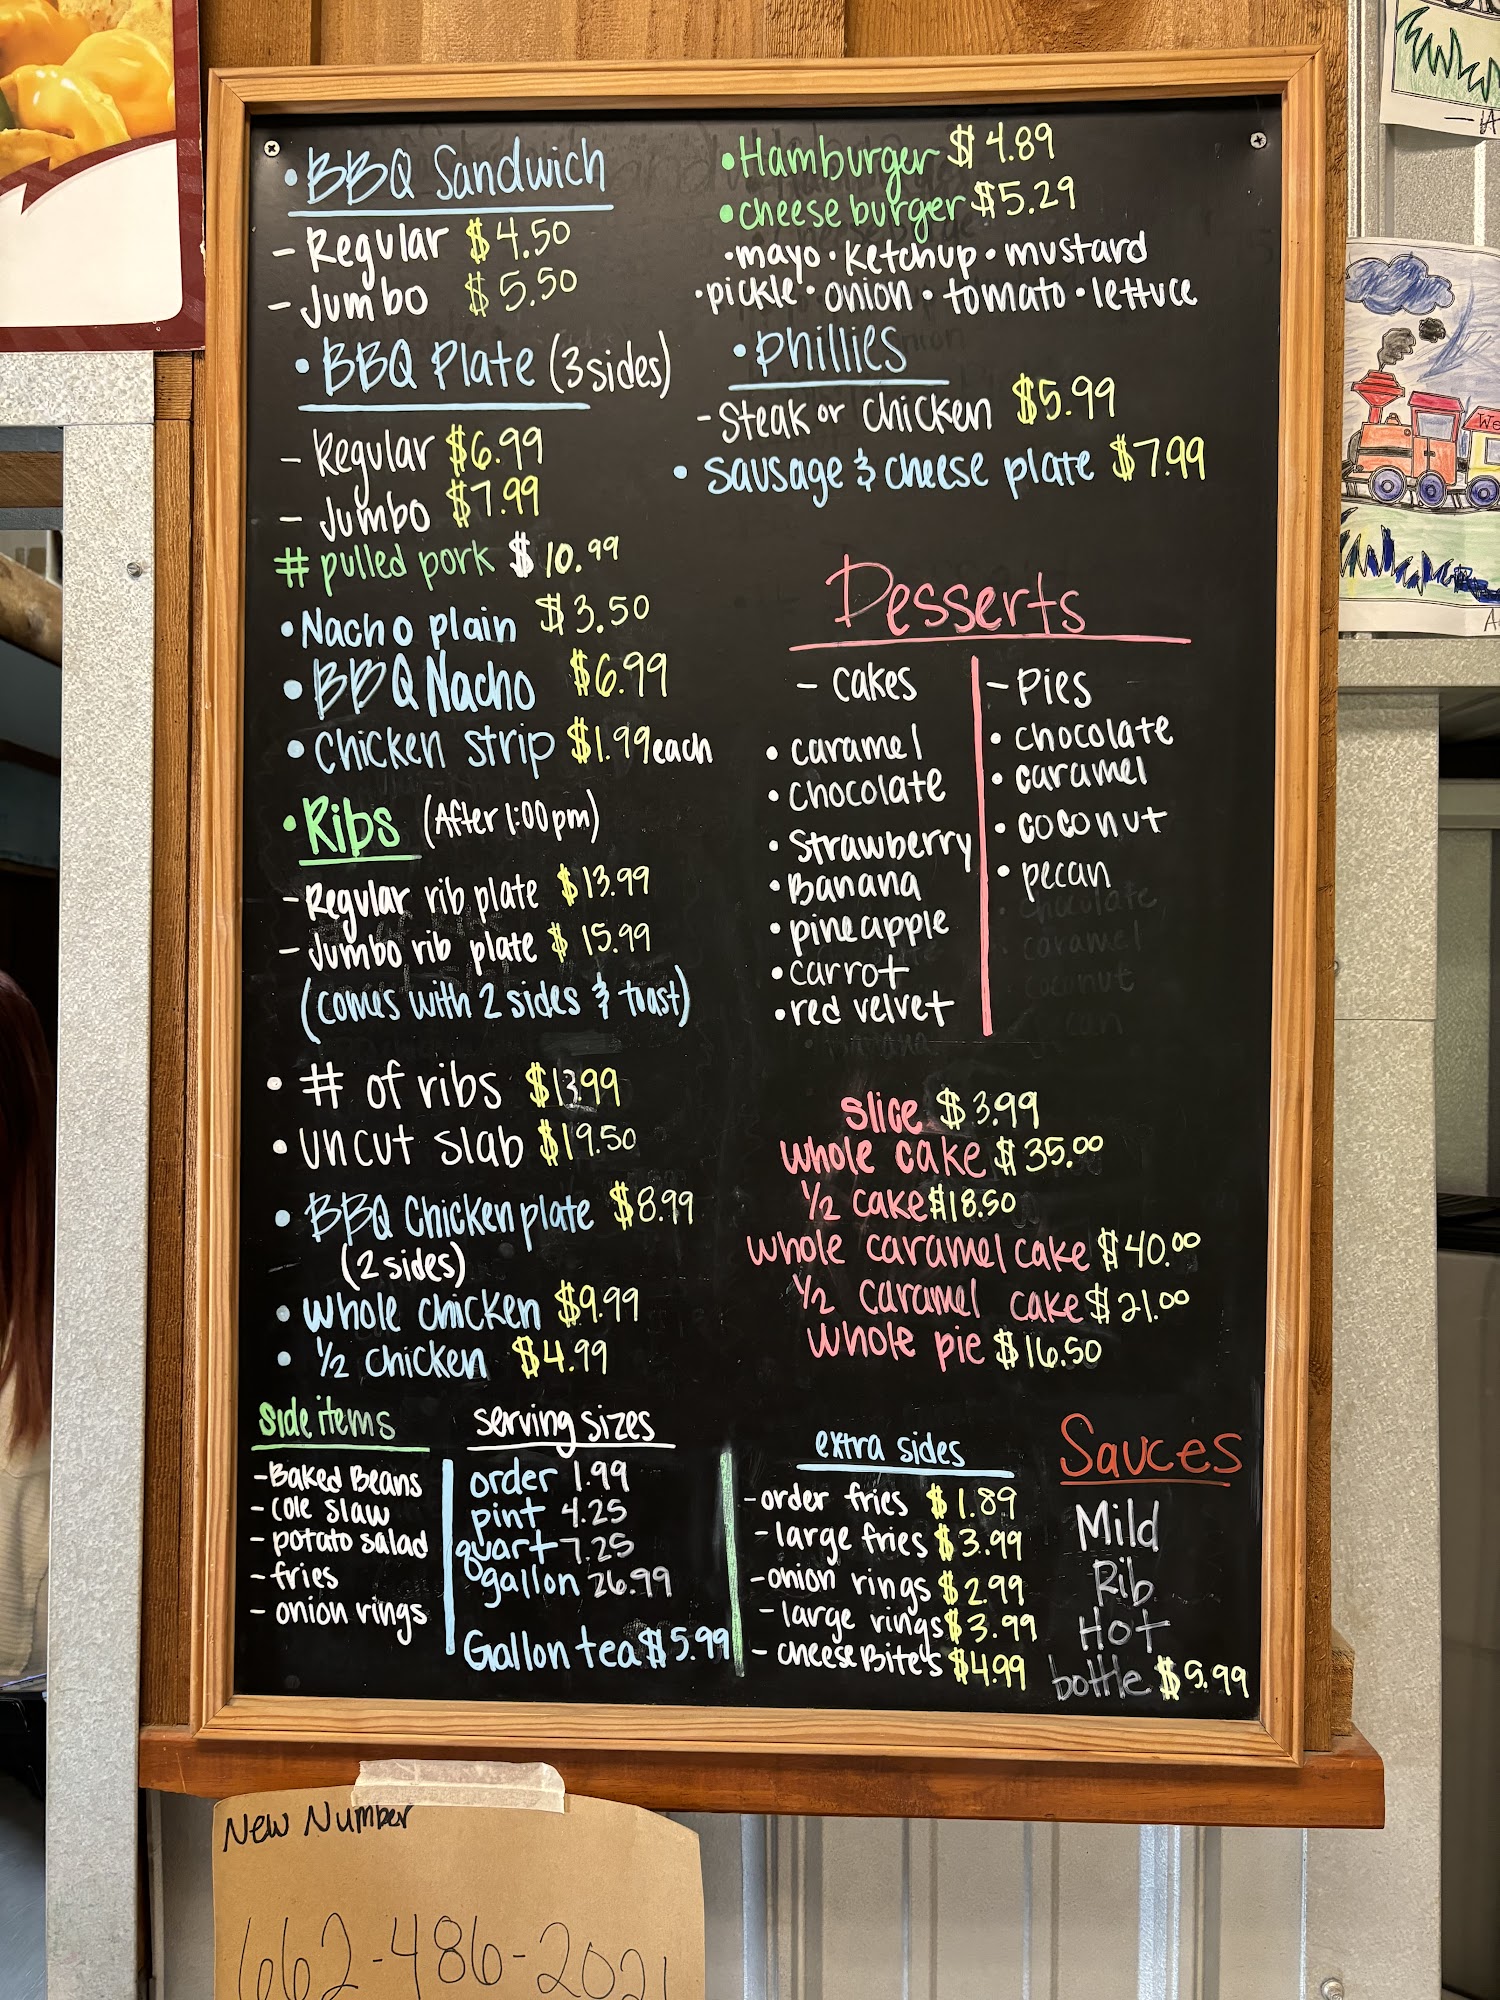 • BBQ Sandwich
- Regular $4.50
- Jumbo $5.50
• BBQ Plate (3 sides)
- Regular $6.99
- Jumbo $7.99
# pulled pork $10.99
• Nacho plain $3.50
• BBQ Nacho $6.99
• Chicken strip $1.99 each
• Ribs (After 1:00pm)
- Regular rib plate $13.99
- Jumbo rib plate $15.99
(comes with 2 sides & toast)
• # of ribs $13.99
• uncut slab $19.50
• BBQ Chicken plate $8.99
(2 sides)
• whole chicken $9.99
• 1/2 chicken $4.99
• Hamburger $4.89
• cheese burger $5.29
• mayo • ketchup • mustard
• pickle • onion • tomato • lettuce
• phillies
- Steak or chicken $5.99
• sausage & cheese plate $7.99
Desserts
- cakes
• caramel
• chocolate
• Strawberry
• Banana
• pineapple
• carrot
• red velvet
- Pies
• chocolate
• caramel
• coconut
• pecan
chocolate
caramel
coconut
slice $3.99
whole cake $35.00
1/2 cake $18.50
whole caramel cake $40.00
1/2 caramel cake $21.00
whole pie $16.50
side items
- Baked Beans
- cole slaw
- potato salad
- fries
- onion rings
serving sizes
order 1.99
pint 4.25
quart 7.25
gallon 26.99
Gallon tea $5.99
extra sides
- order fries $1.89
- large fries $3.99
- onion rings $2.99
- large rings $3.99
- cheese Bite's $4.99
Sauces
Mild
Rib
Hot
bottle $5.99
New Number
662-486-2021